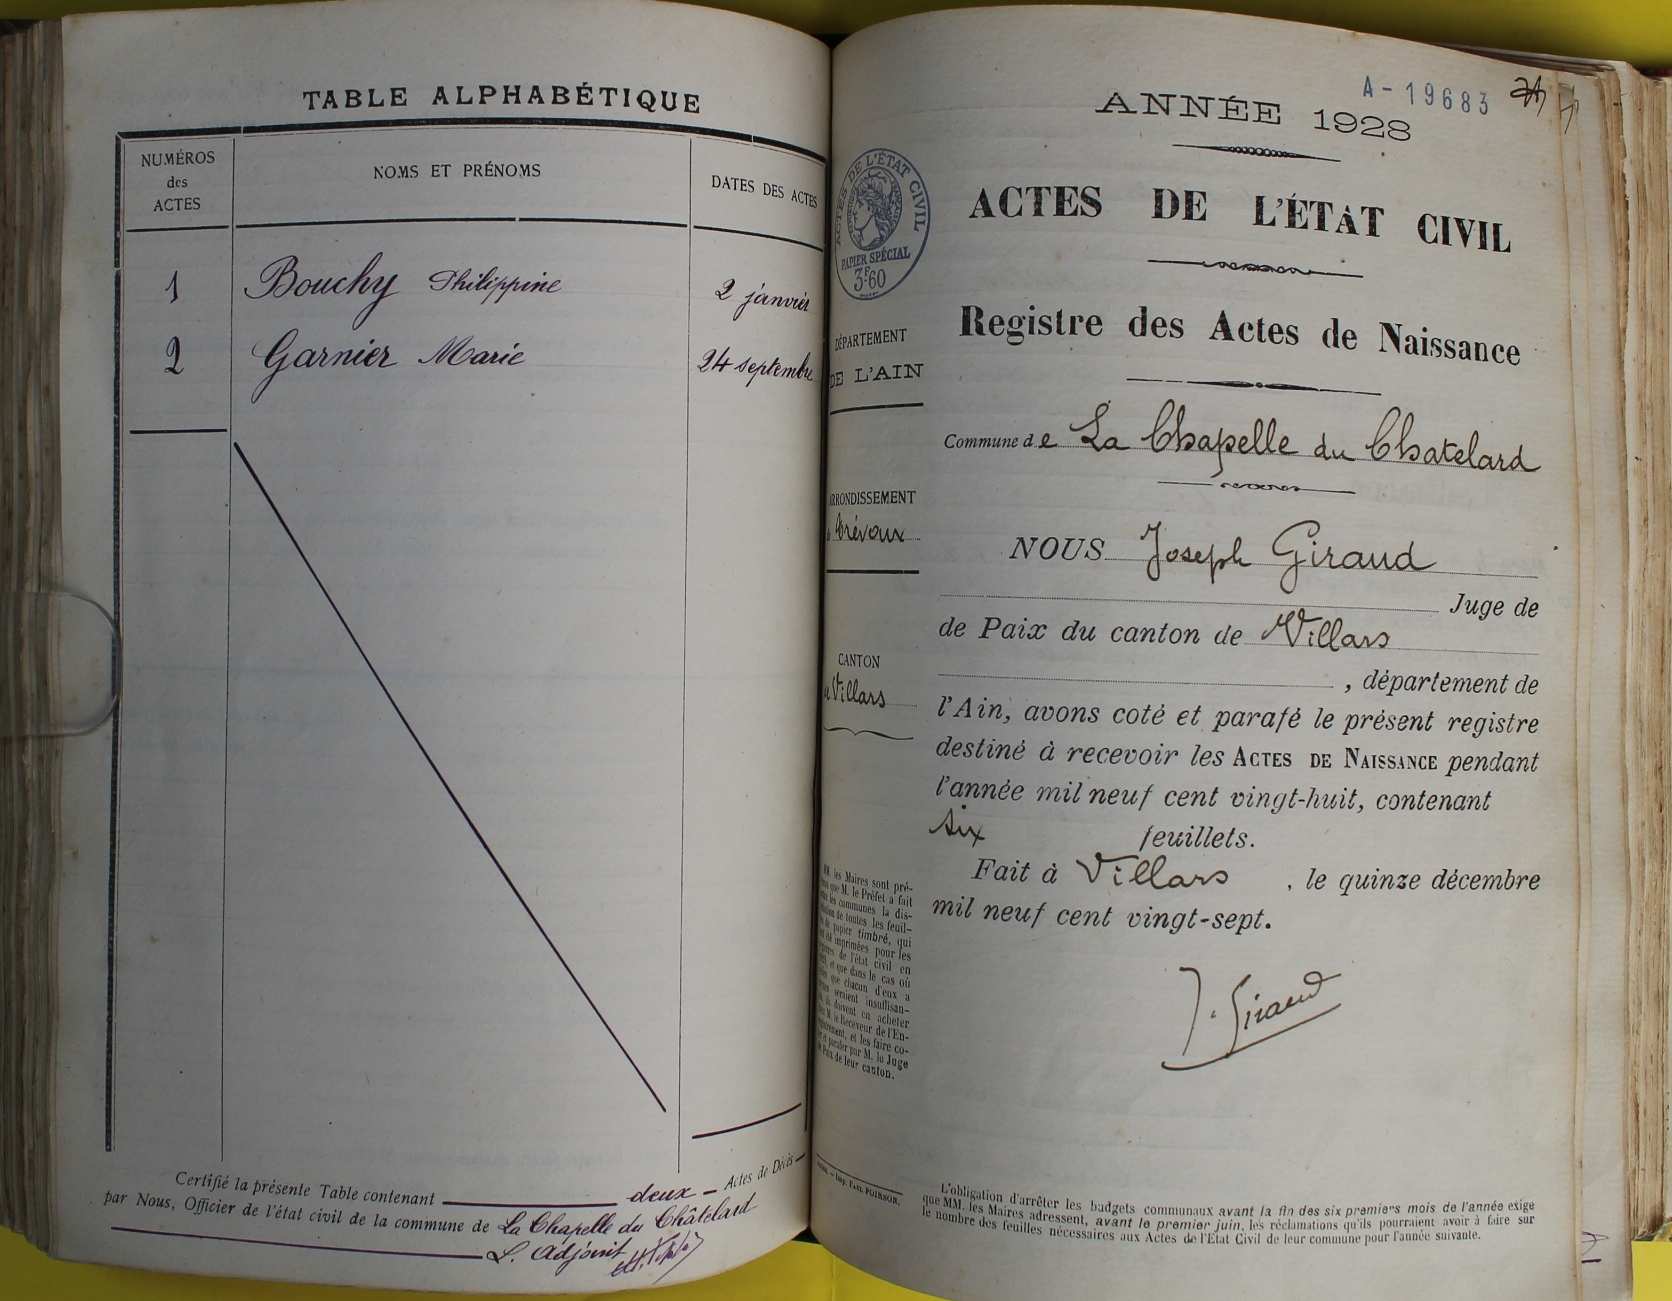 TABLE ALPHABÉTIQUE
NUMÉROS
des
ACTES
NOMS ET PRÉNOMS
DATES DES ACTES
1 Bouchy Philippine 2 janvier
2 Garnier Marie 24 septembre
Certifié la présente Table contenant deux Actes de Décès
par Nous, Officier de l'état civil de la commune de La Chapelle du Châtelard
L. Adjoint
A-19683
ANNÉE 1928
ACTES DE L'ÉTAT CIVIL
ACTES DE L'ÉTAT CIVIL
PAPIER SPÉCIAL
3F60
Registre des Actes de Naissance
DÉPARTEMENT
DE L'AIN
Commune de La Chapelle du Chatelard
ARRONDISSEMENT
Trévoux
NOUS Joseph Giraud
Juge de
de Paix du canton de Villars
CANTON
Villars
, département de
l'Ain, avons coté et parafé le présent registre
destiné à recevoir les ACTES DE NAISSANCE pendant
l'année mil neuf cent vingt-huit, contenant
six feuillets.
Fait à Villars, le quinze décembre
mil neuf cent vingt-sept.
J. Giraud
MM. les Maires sont pré-
que M. le Préfet a fait
les communes la dis-
de toutes les feuil-
papier timbré, qui
imprimées pour les
de l'état civil en
et que dans le cas où
que chacun d'eux a
seraient insuffisan-
doivent en acheter
M. le Receveur de l'En-
et les faire co-
et parafer par M. le Juge
de Paix de leur canton.
Imp. PAUL POISSON.
L'obligation d'arrêter les budgets communaux avant la fin des six premiers mois de l'année exige
que MM. les Maires adressent, avant le premier juin, les réclamations qu'ils pourraient avoir à faire sur
le nombre des feuilles nécessaires aux Actes de l'Etat Civil de leur commune pour l'année suivante.